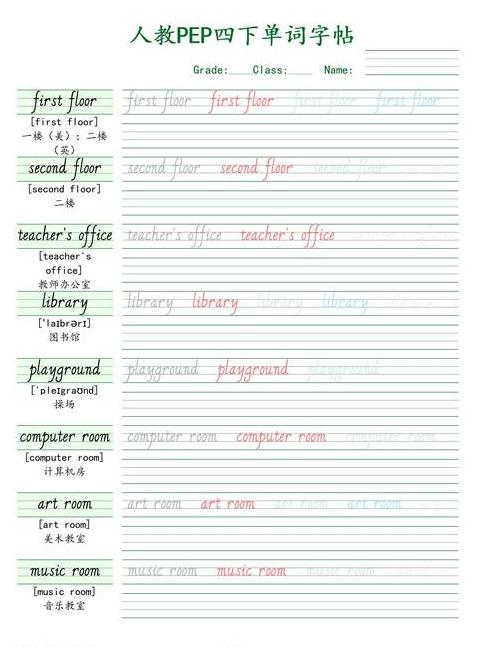 人教PEP四下单词字帖
Grade:____Class:____ Name:
first floor first floor first floor first floor first floor
[first floor]
一楼（美）；二楼
（英）
second floor second floor second floor second floor
[second floor]
二楼
teacher's office teacher's office teacher's office
[teacher's
office]
教师办公室
library library library library library
['laɪbrərɪ]
图书馆
playground playground playground playground
['pleɪgraʊnd]
操场
computer room computer room computer room computer room
[computer room]
计算机房
art room art room art room art room art room
[art room]
美术教室
music room music room music room music room
[music room]
音乐教室